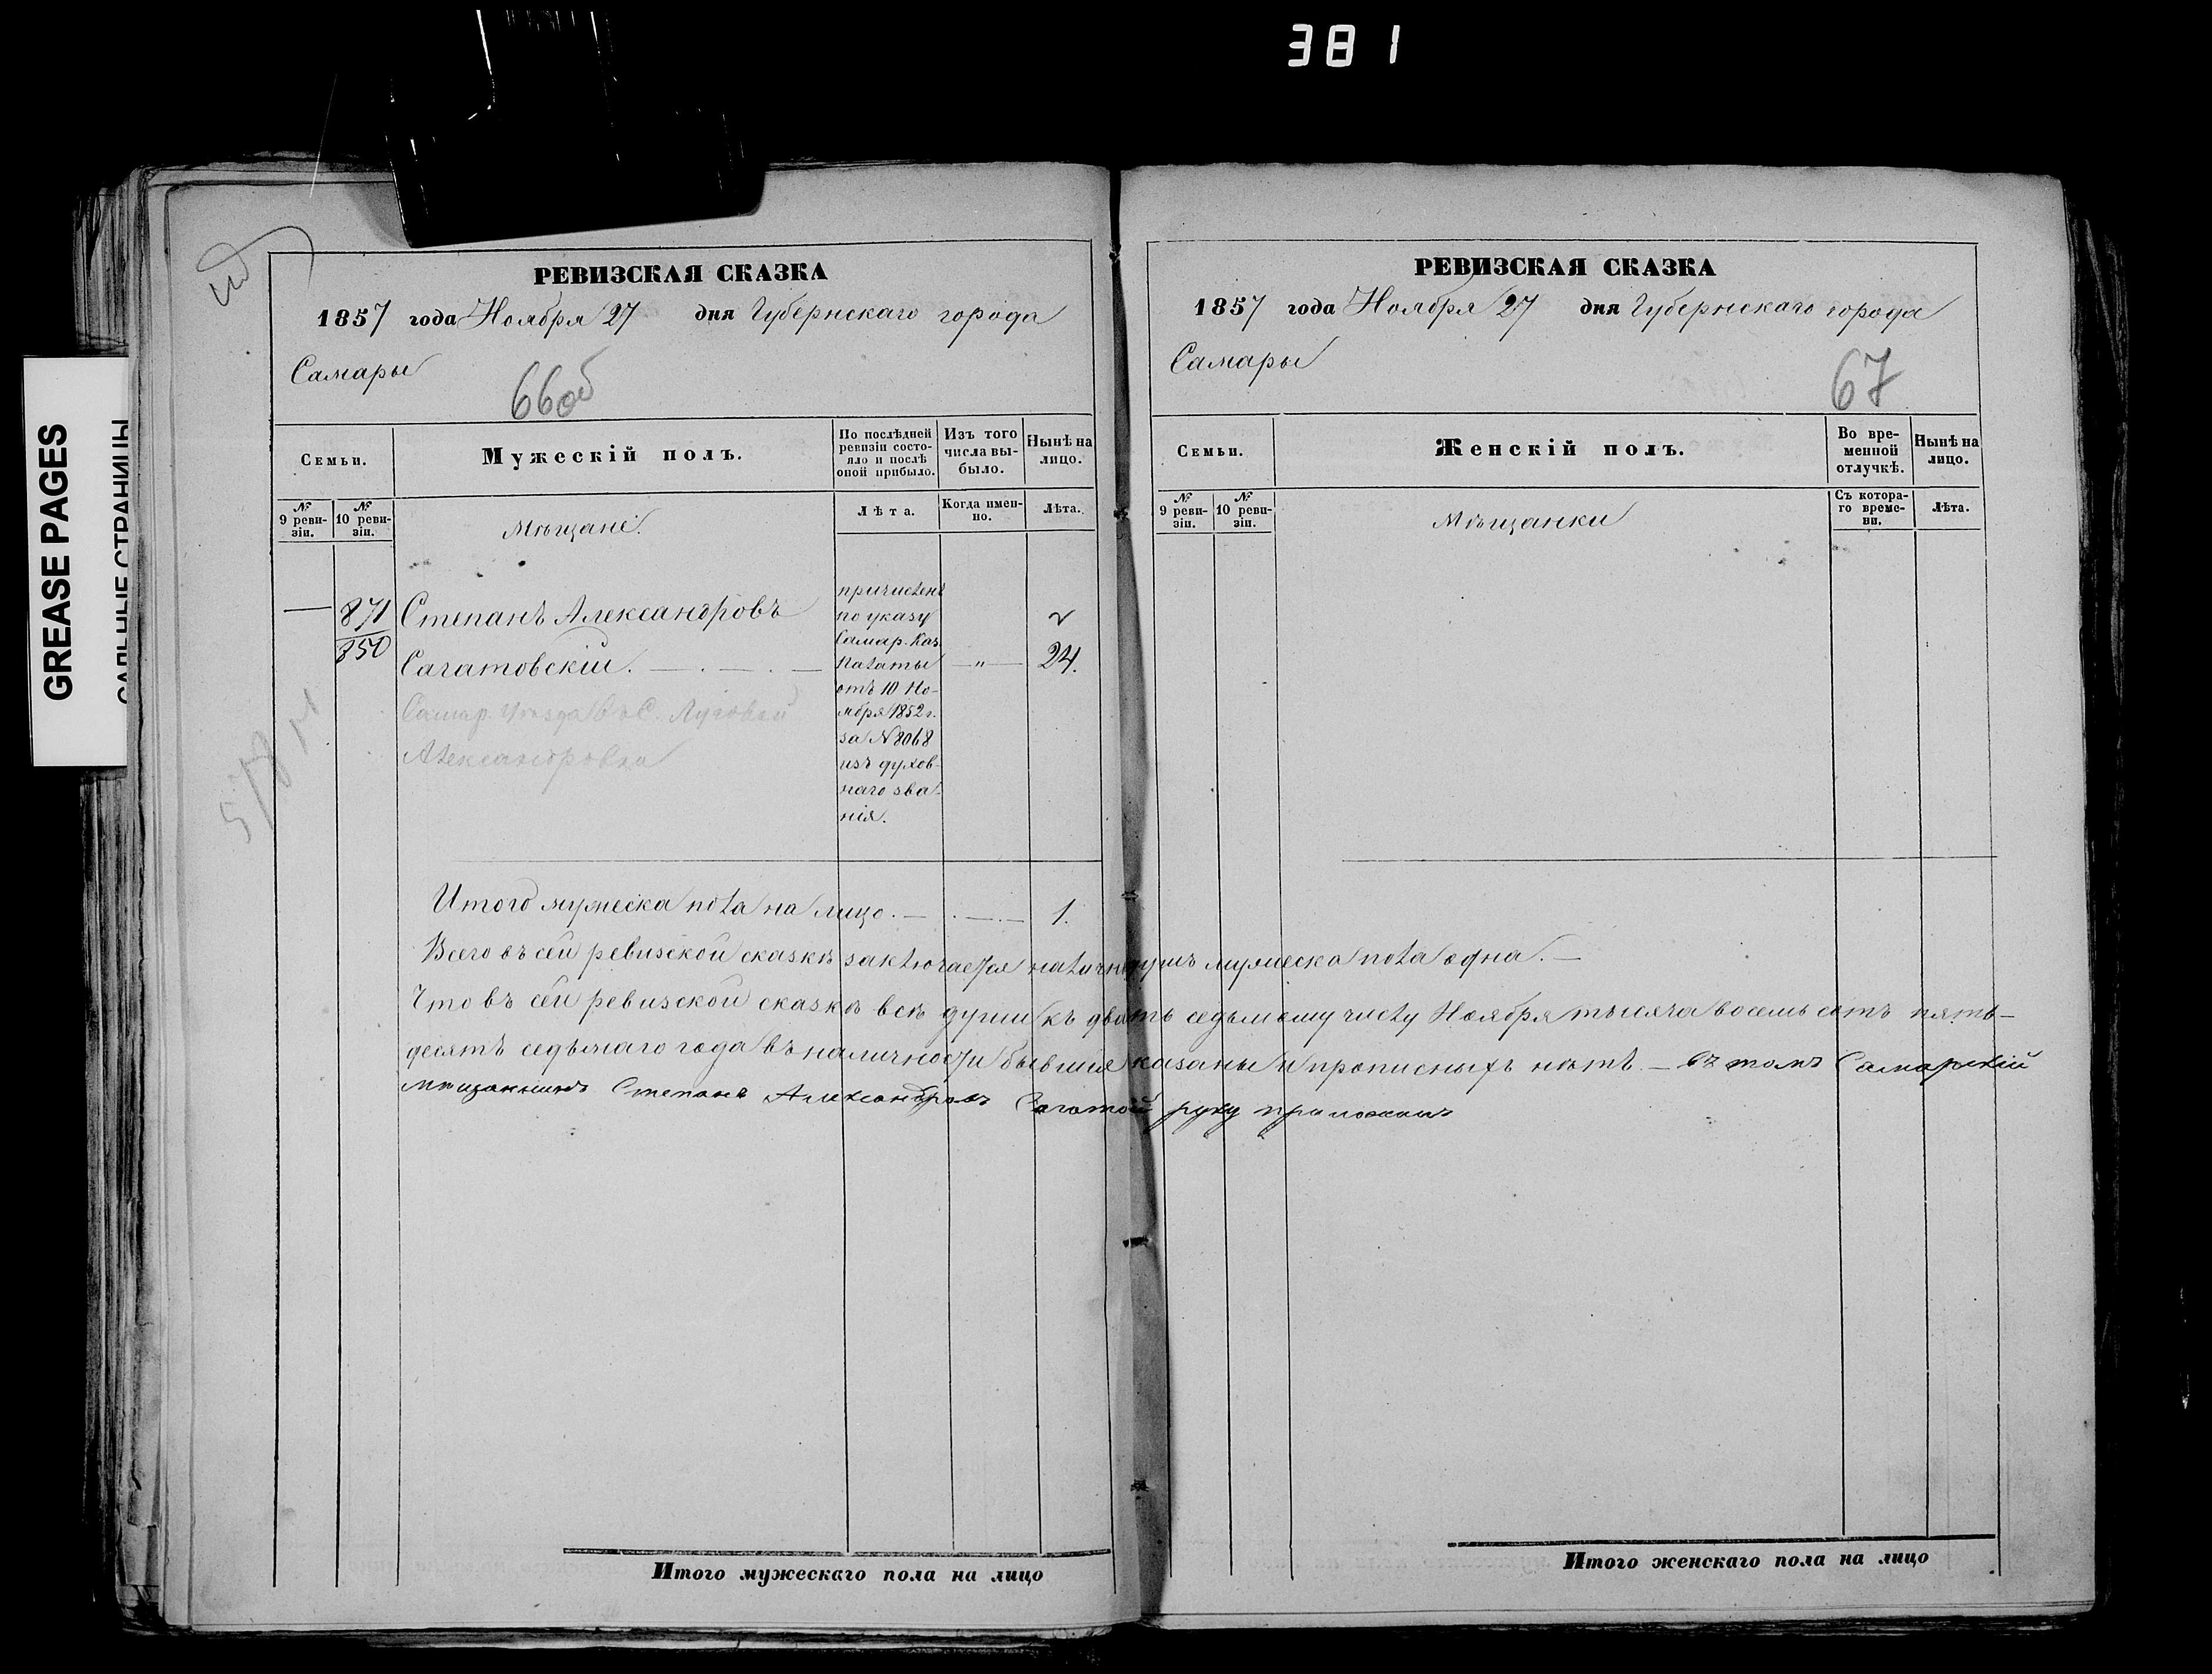 381
GREASE PAGES
САЛЬНЫЕ СТРАНИЦЫ
РЕВИЗСКАЯ СКАЗКА
1857 года Ноября 27 дня Губернскаго города
Самары
66об
Семьи.
Мужескій полъ.
По послѣдней ревизіи состояло и послѣ оной прибыло.
Изъ того числа выбыло.
Нынѣ на лицо.
№ 9 ревизіи.
№ 10 ревизіи.
Мѣщане.
Лѣта.
Когда именно.
Лѣта.
— 871
850
Степанъ Александровъ
Сагатовскій. — 24.
Самар. уѣзда въ С.
Александровка
причисленъ
по указу
Самар. Каз.
Палаты
отъ 10 Но-
ября 1852 г.
за № 8068
изъ духов-
наго зва-
нія.
Итого мужеска пола на лицо. — 1.
Всего въ сей ревизской сказкѣ заключается налично душъ мужеска пола одна. —
Что въ сей ревизской сказкѣ всѣ души къ двадть седьмому числу Ноября тысяча восемь сотъ пять-
десятъ седьмаго года въ наличности бывшия показаны и прописныхъ нѣтъ. — въ томъ Самарскій
мѣщанинъ Степанъ Александровъ руку приложилъ
Итого мужескаго пола на лицо
РЕВИЗСКАЯ СКАЗКА
1857 года Ноября 27 дня Губернскаго города
Самары
67
Семьи.
Женскій полъ.
Во временной отлучкѣ.
Нынѣ на лицо.
№ 9 ревизіи.
№ 10 ревизіи.
Мѣщанки
Съ котораго времени.
Лѣта.
Итого женскаго пола на лицо